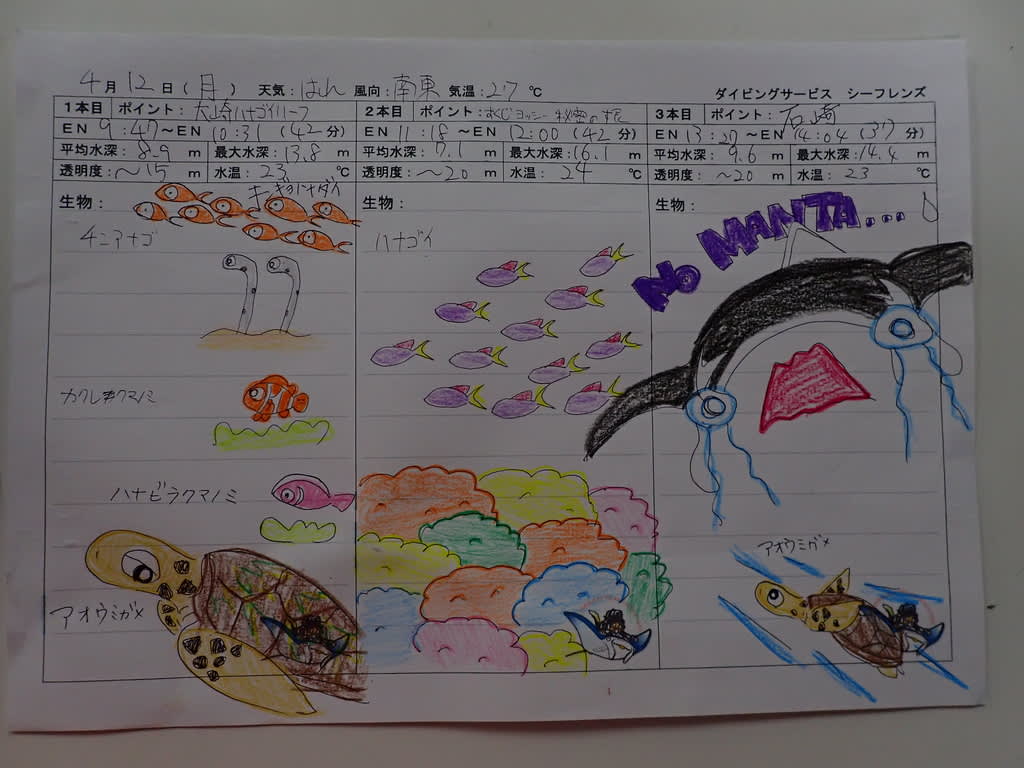 4月12日(月) 天気：はれ 風向：南東 気温：27℃
ダイビングサービス シーフレンズ
1本目 ポイント：大崎ハナゴイリーフ
EN 9:49～EN 10:31 (42分)
平均水深：8.9 m 最大水深：13.8 m
透明度：～15 m 水温：23 ℃
生物：
キンギョハナダイ
チンアナゴ
カクレクマノミ
ハナビラクマノミ
アオウミガメ
2本目 ポイント：
EN 11:18～EN 12:00 (42分)
平均水深：7.1 m 最大水深：16.1 m
透明度：～20 m 水温：24 ℃
生物：
ハナゴイ
3本目 ポイント：石崎
EN 13:27～EN 14:04 (37分)
平均水深：9.6 m 最大水深：14.4 m
透明度：～20 m 水温：23 ℃
生物：
NO MANTA...
アオウミガメ